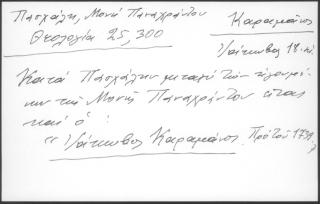 Πασχάλη, Μονή Παναχράντου
Θεολογία 25, 300
Καραμάνος
Ιάκωβος 18. αἰ.
Κατά Πασχάλην μεταξύ τῶν ἡγουμέ-
νων τῆς Μονῆς Παναχράντου εἶναι
καί ὁ:
"Ἰάκωβος Καραμάνος. Πρό τοῦ 1739"